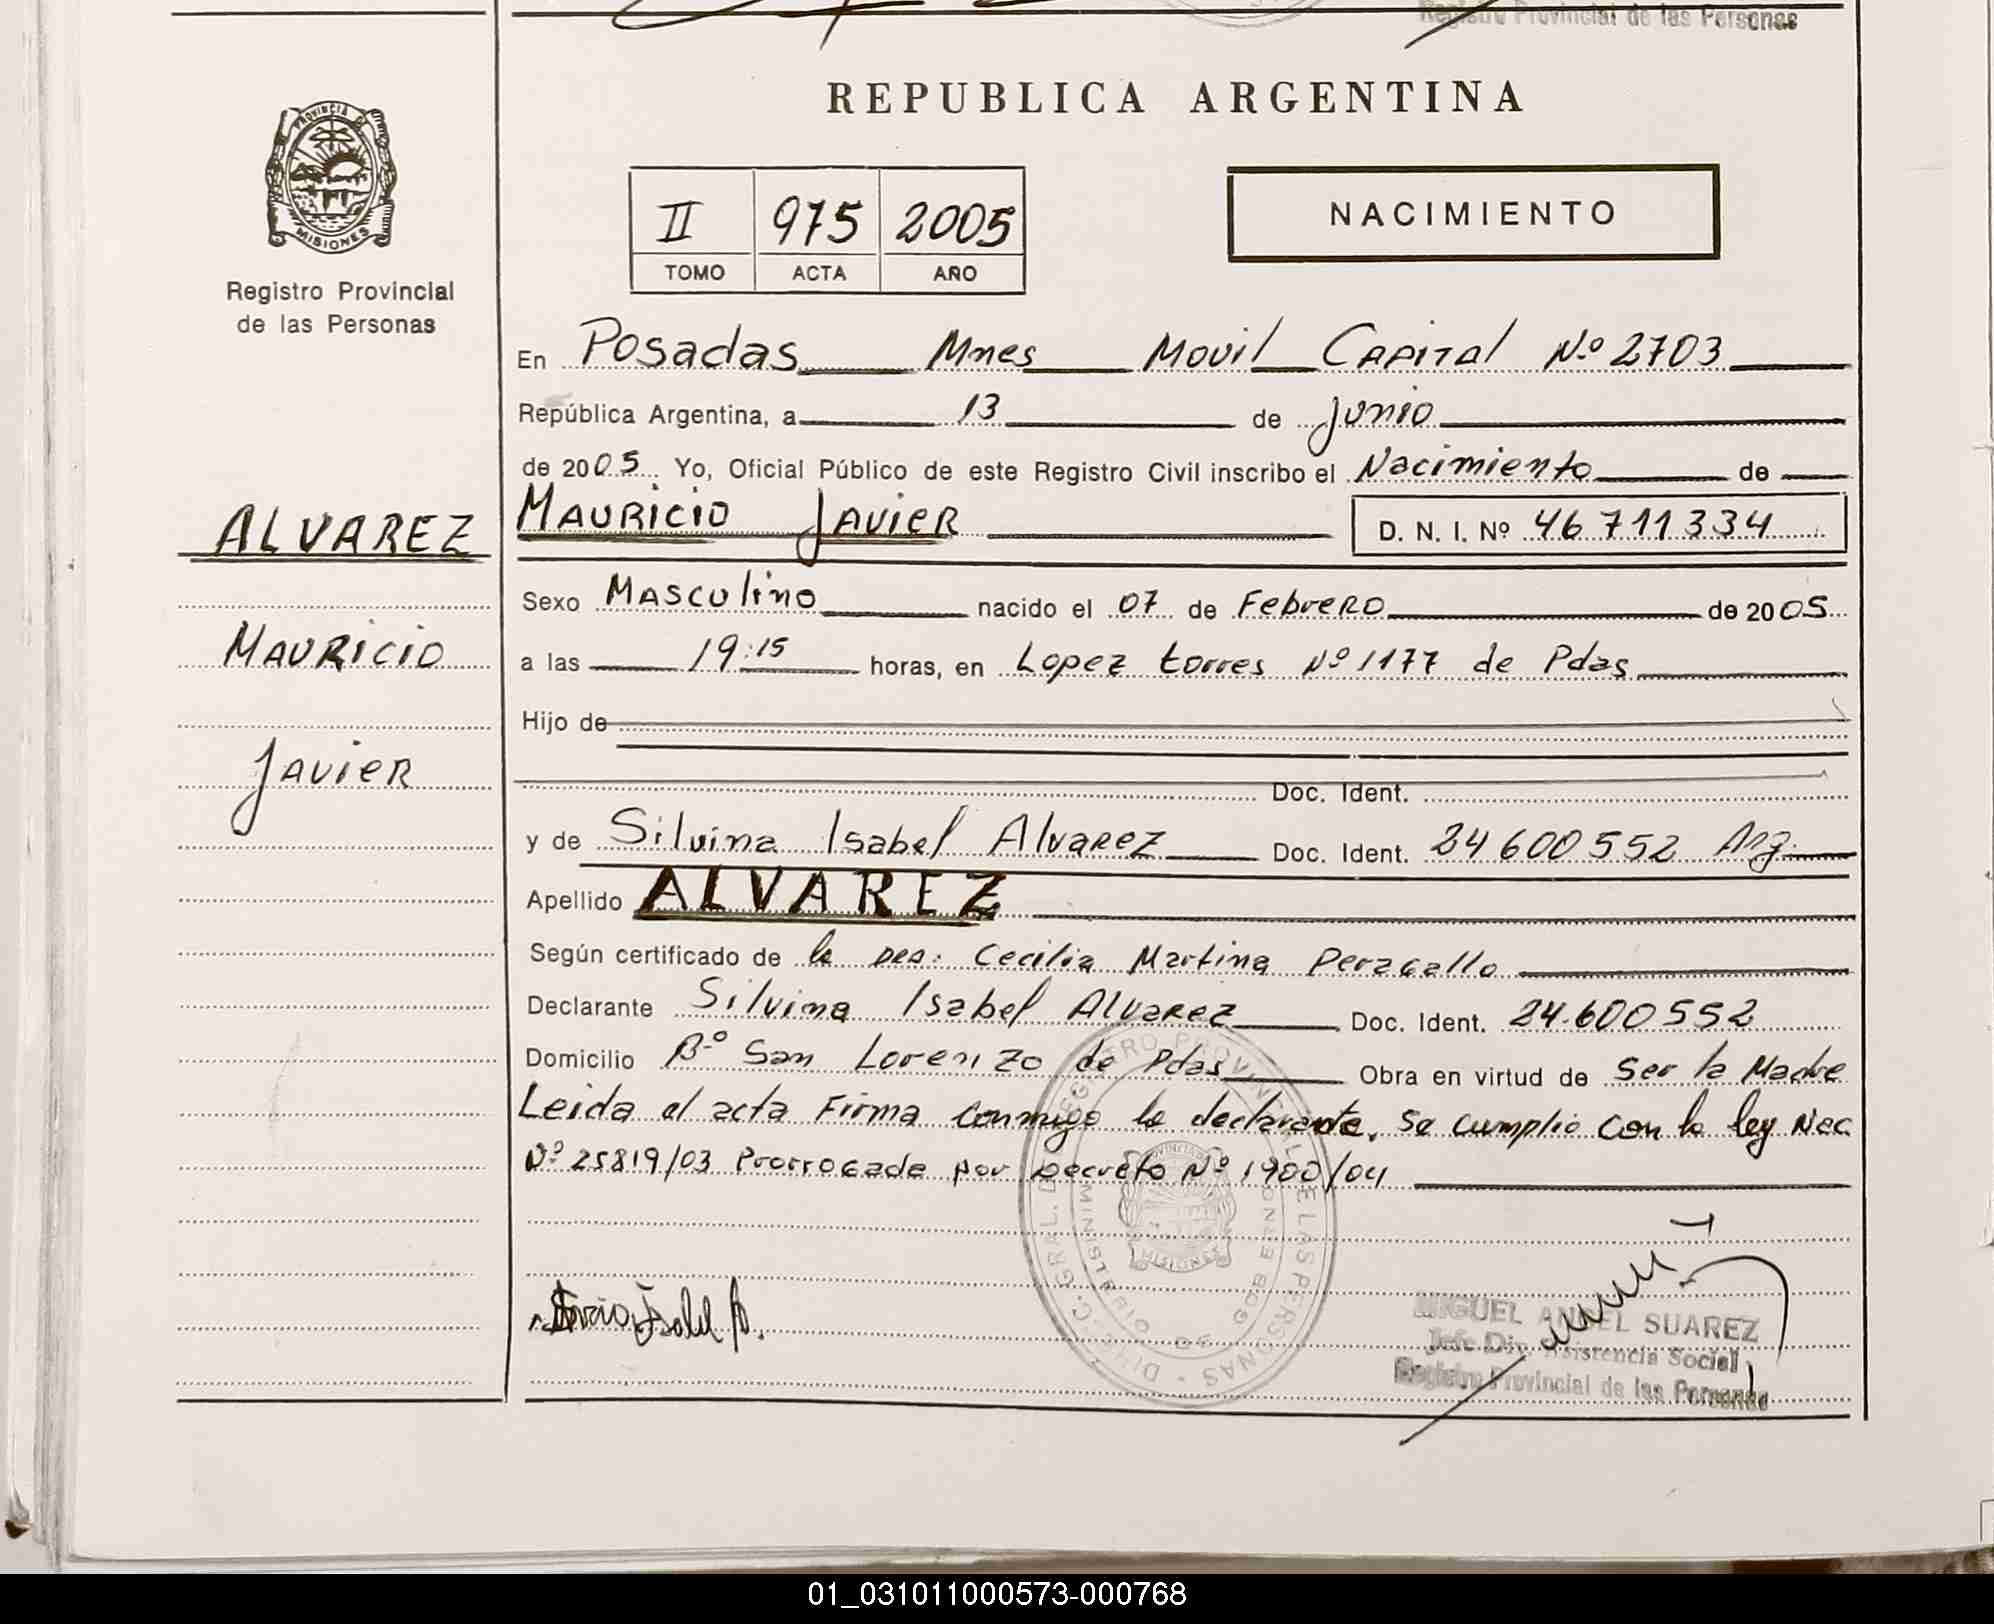 Registro Provincial de las Personas
REPUBLICA ARGENTINA
PROVINCIA DE
MISIONES
Registro Provincial
de las Personas
II 975 2005
TOMO ACTA AÑO
NACIMIENTO
En Posadas Mnes Movil Capital Nº 2703
República Argentina, a 13 de Junio
de 2005 Yo, Oficial Público de este Registro Civil inscribo el Nacimiento de
ALVAREZ
Mauricio
Javier
Mauricio Javier D. N. I. Nº 46711334
Sexo Masculino nacido el 07 de Febrero de 2005
a las 19:15 horas, en Lopez torres Nº 1177 de Pdas
Hijo de
Doc. Ident.
y de Silvina Isabel Alvarez Doc. Ident. 24600552 Arg.
Apellido ALVAREZ
Según certificado de la DRA: Cecilia Martina Peragallo
Declarante Silvina Isabel Alvarez Doc. Ident. 24.600552
Domicilio Bº San Lorenzo de Pdas Obra en virtud de Ser la Madre
Leida el acta Firma conmigo la declarante. Se cumplio con la ley Nac
Nº 25819/03 Prorrogada por Decreto Nº 1900/04
DIREC. GRAL. DE REGISTRO PROVINCIAL DE LAS PERSONAS
MINISTERIO DE GOBIERNO
MISIONES
Isabel A.
MIGUEL ANGEL SUAREZ
Jefe Div. Asistencia Social
Registro Provincial de las Personas
01_031011000573-000768